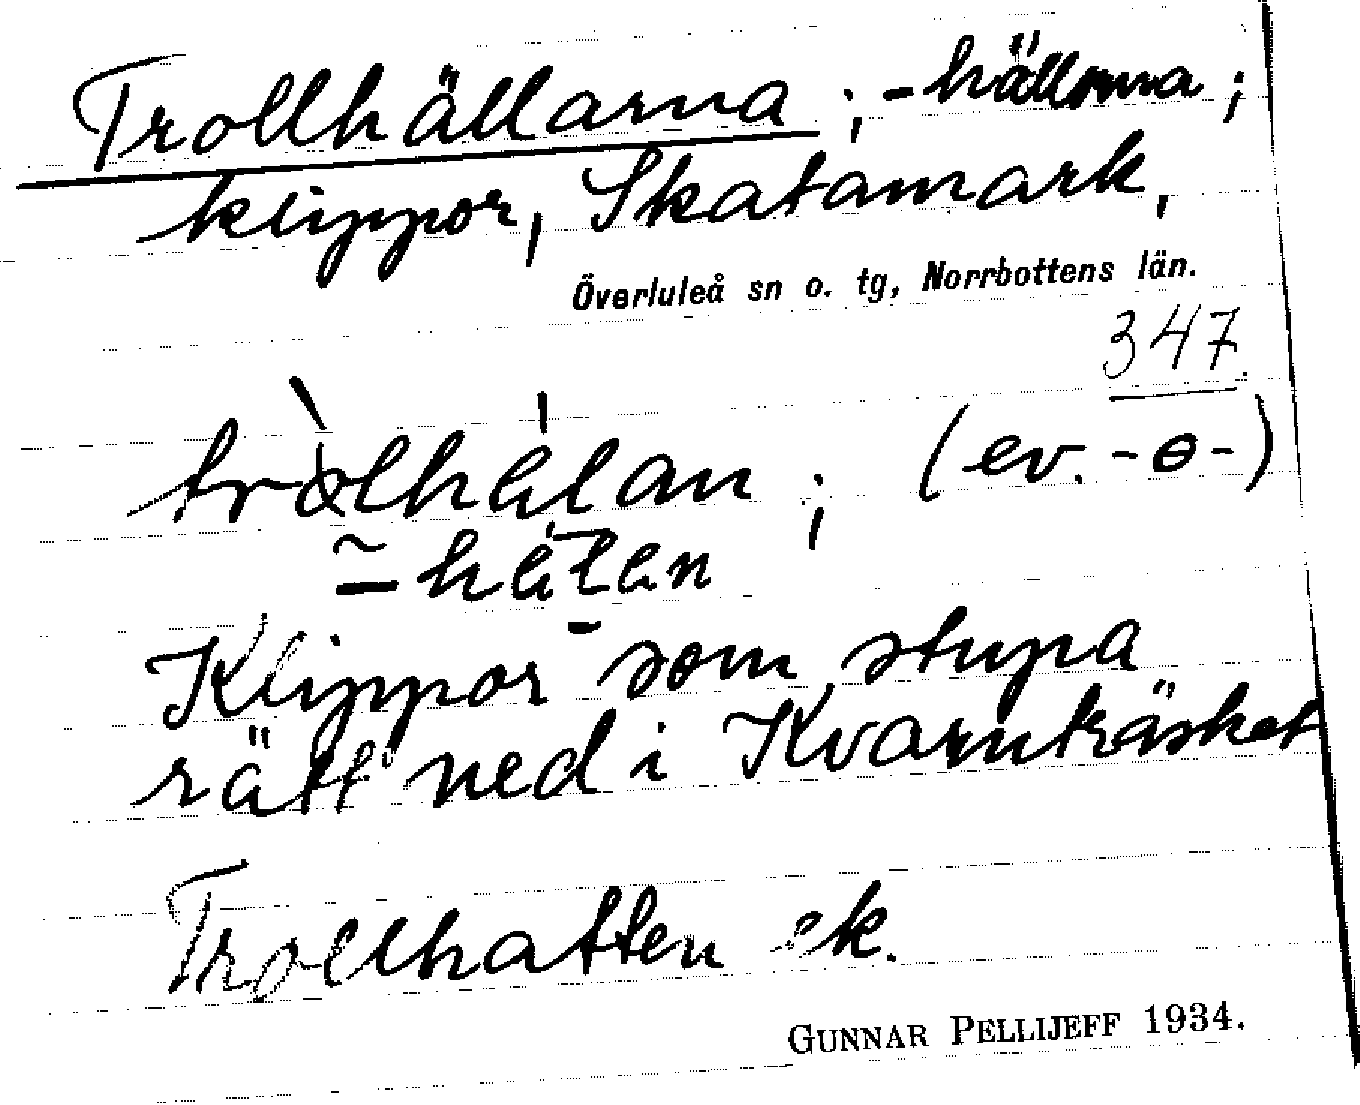 Trollhällarna ; -hällorna ;
klippor, Skatamark,
Överluleå sn o. tg, Norrbottens län.
347.
(ev. -ɵ-)
Klippor som stupa
rätt ned i Kvarnträsket
Trollhatten ek.
GUNNAR PELLIJEFF 1934.